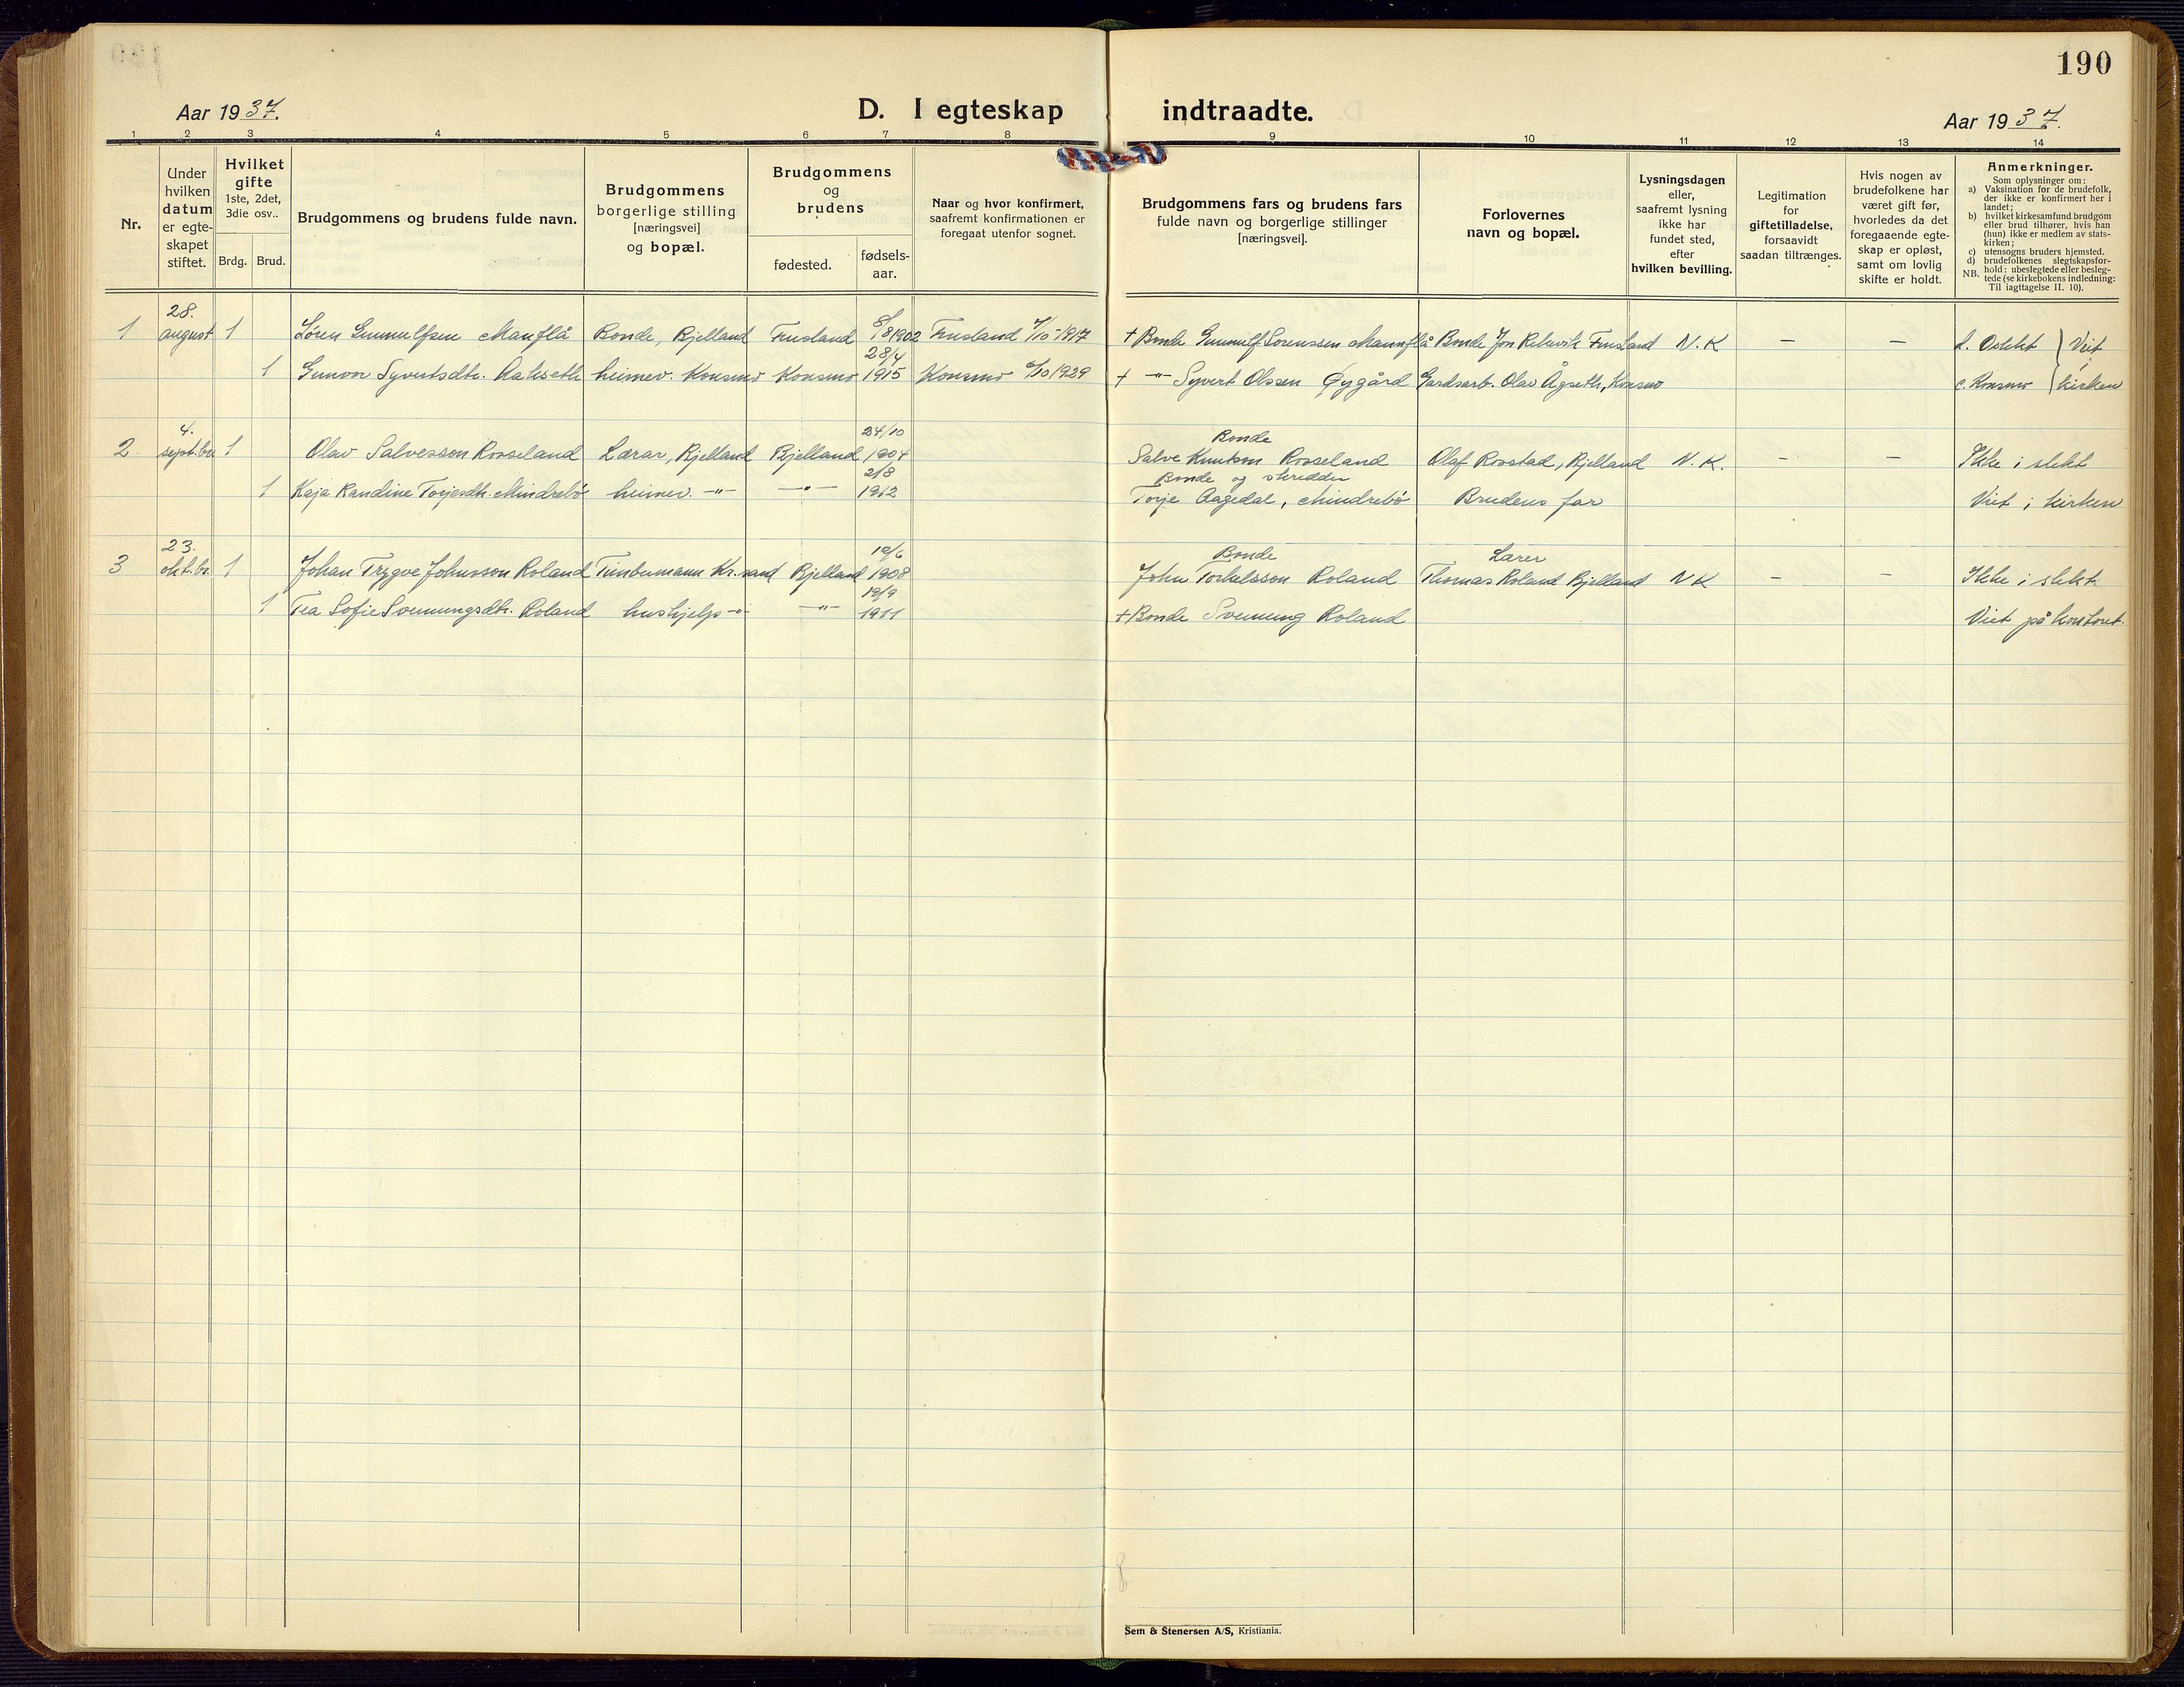 190
Aar 1937.
D. I egteskap indtraadte.
Aar 1937.
1 2 3 4 5 6 7 8 9 10 11 12 13 14
Nr.
Under hvilken datum er egteskapet stiftet.
Hvilket gifte 1ste, 2det, 3die osv..
Brdg. Brud.
Brudgommens og brudens fulde navn.
Brudgommens borgerlige stilling [næringsvei] og bopæl.
Brudgommens og brudens
fødested.
fødsels-aar.
Naar og hvor konfirmert, saafremt konfirmationen er foregaat utenfor sognet.
Brudgommens fars og brudens fars fulde navn og borgerlige stillinger [næringsvei].
Forlovernes navn og bopæl.
Lysningsdagen eller, saafremt lysning ikke har fundet sted, efter hvilken bevilling.
Legitimation for giftetilladelse, forsaavidt saadan tiltrænges.
Hvis nogen av brudefolkene har været gift før, hvorledes da det foregaaende egteskap er opløst, samt om lovlig skifte er holdt.
Anmerkninger.
Som oplysninger om:
a) Vaksination for de brudefolk, der ikke er konfirmert her i landet;
b) hvilket kirkesamfund brudgom eller brud tilhører, hvis han (hun) ikke er medlem av statskirken;
c) utensogns bruders hjemsted.
d) brudefolkenes slegtskapsforhold: ubeslegtede eller beslegtede (se kirkebokens indledning: Til iagttagelse II. 10).
NB.
1 28. august 1 Søren Gunnulfsen Manflå Bonde, Bjelland Finsland 8/8 1902 Finsland /10 1917 + Bonde Gunnulf Sorenssen Mannflå Bonde Jon Rekevik Finsland N.K — — d. Oslekt Viet
1 Gunvor Syvertsdtr. heimev. Konsmo Konsmo 28/4 1915 Konsmo 6/10 1929 + -"- Syvert Olssen Øygård Gardsarb. Olav Ågseth, Konsmo c. Konsmo i kirken
2. 4. sept.br. 1 Olav Salvesson Rosseland Lærar, Bjelland Bjelland 24/10 1904 Bonde Salve Knutson Rosseland Olaf Rosstad, Bjelland N.K. - — Ikke i slekt
1 Kaja Randine Torjesdtr. Mindrebö heimev. -"- -"- 2/8 1912 Bonde og skredder Torje Aagedal, Mindrebö Brudens far Viet i kirken
3 23. okt.br. 1 Johan Trygve Johnsson Roland Timbermann Kr.sand Bjelland 19/6 1908 Bonde John Torkelsson Roland Lærer Thomas Roland Bjelland N K - - Ikke i slekt
1 Tea Sofie Svennungsdtr. Roland hushjelp -"- -"- 19/9 1911 + Bonde Svennung Roland Viet på kontoret.
Sem & Stenersen A/S, Kristiania.